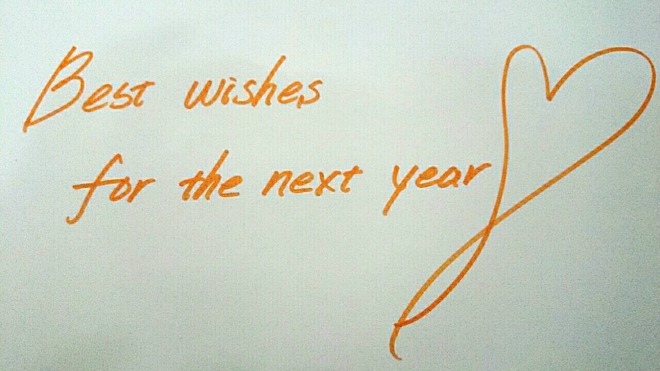 Best wishes
for the next year